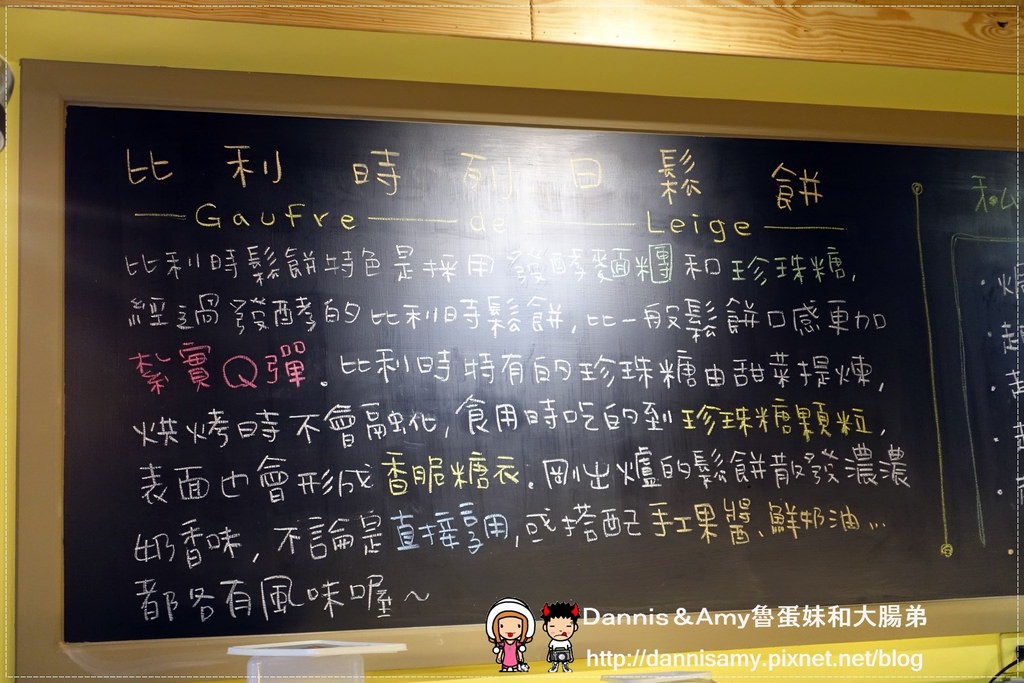 比利時列日鬆餅
Gaufre de Leige
比利時鬆餅特色是採用發酵麵糰和珍珠糖,
經過發酵的比利時鬆餅,比一般鬆餅口感更加
紮實Q彈.比利時特有的珍珠糖由甜菜提煉,
烘烤時不會融化,食用時吃的到珍珠糖顆粒,
表面也會形成香脆糖衣.剛出爐的鬆餅散發濃濃
奶香味,不論是直接享用,或搭配手工果醬、鮮奶油…
都各有風味喔~
Dannis & Amy魯蛋妹和大腸弟
http://dannisamy.pixnet.net/blog